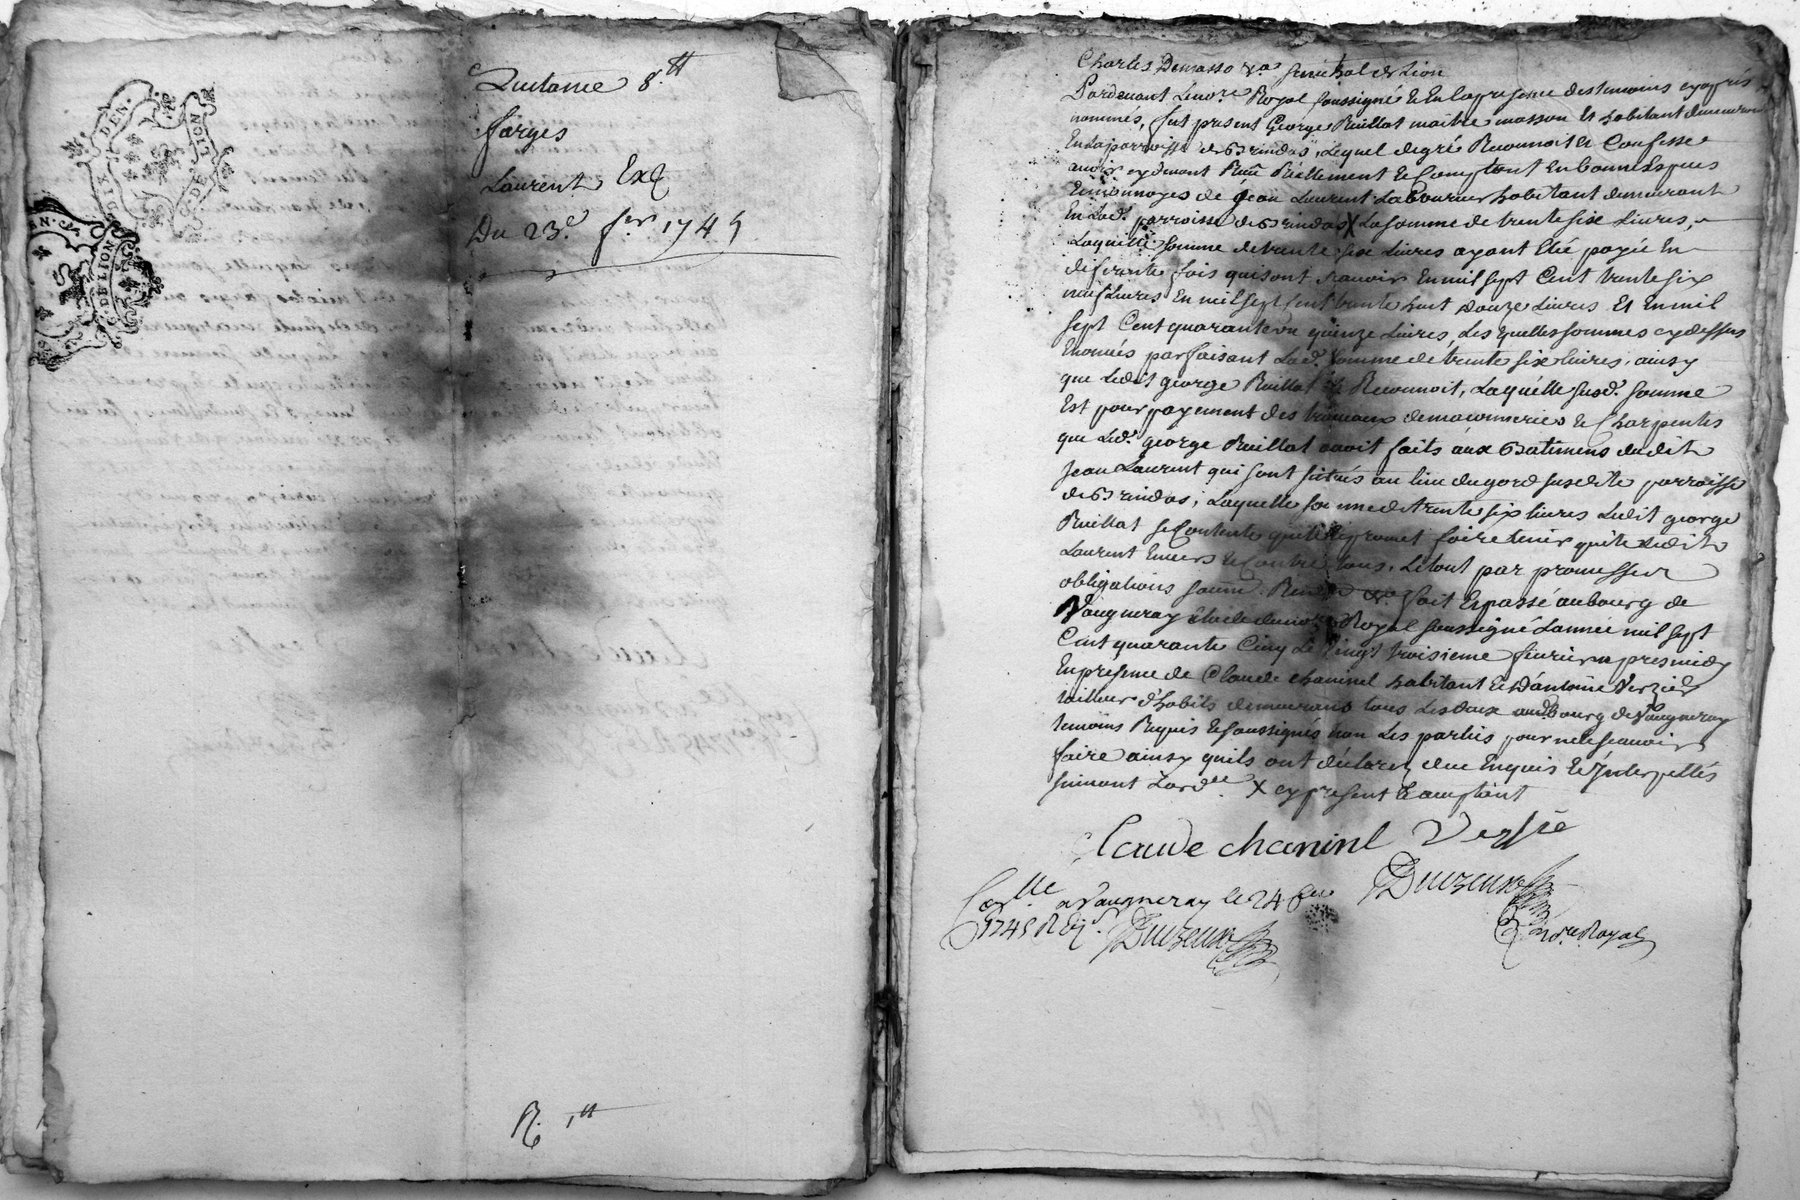 DIX DEN.
G. DE LION
EN.
G. DE LION
Quittance 8.tt
farges
Laurent, Exé
Du 23.e fer 1745
R. 1tt
Charles Demasso &a senechal de Lion
Pardevant Le nore Royal soussigné & En la presence des temoins cyaprès
nommés, fut present George Ruillat maître masson et habitant demeurant
En la parroisse de Brindas, Lequel de gré Reconnoit & Confesse
avoir cy devant Reellement & Comptant En bonnes Especes
& monnoyes de Jean Laurent Laboureur habitant demeurant
En lad. parroisse de Brindas X La somme de trente six Livres,
Laquelle somme de trente six Livres ayant Eté payée En
diferantes fois qui sont scavoir En mil sept Cent trente six
neuf Livres En mil sept Cent trente huit douze Livres Et En mil
sept Cent quarante un quinze Livres, Les quelles sommes cy dessus
Enoncés parfaisant Lad. somme de trente six livres, ainsy
que Ledit george Ruillat Le Reconnoit, Laquelle susd. somme
Est pour payement des travaux de maconneries & Charpentes
que Led. george Ruillat avoit faits aux Batimens dudit
Jean Laurent qui sont situés au lieu du gord susdite parroisse
de Brindas, Laquelle somme de trente six livres Ledit george
Ruillat se Contente quitte & promet faire tenir quitte Ledit
Laurent Envers & Contre tous, Le tout par promesses
obligations soum. Ren. &a fait & passé au bourg de
Vaugneray Etude du nore Royal soussigné L'année mil sept
Cent quarante Cinq Le vingt troisieme février apres midy
En presence de Claude chaninel habitant & D'antoine Verzier
tailleur d'habits demeurans tous Les deux aud. Bourg de Vaugneray
temoins Requis & soussignés non Les parties pour ne le scavoir
faire ainsy quils ont déclaré de ce Enquis & Interpellés
suivant Lord.ce X cy present & acceptant
Claude chaninel Verzié
Corlle a Vaugneray le 24 feer
1745 R
nore Royal